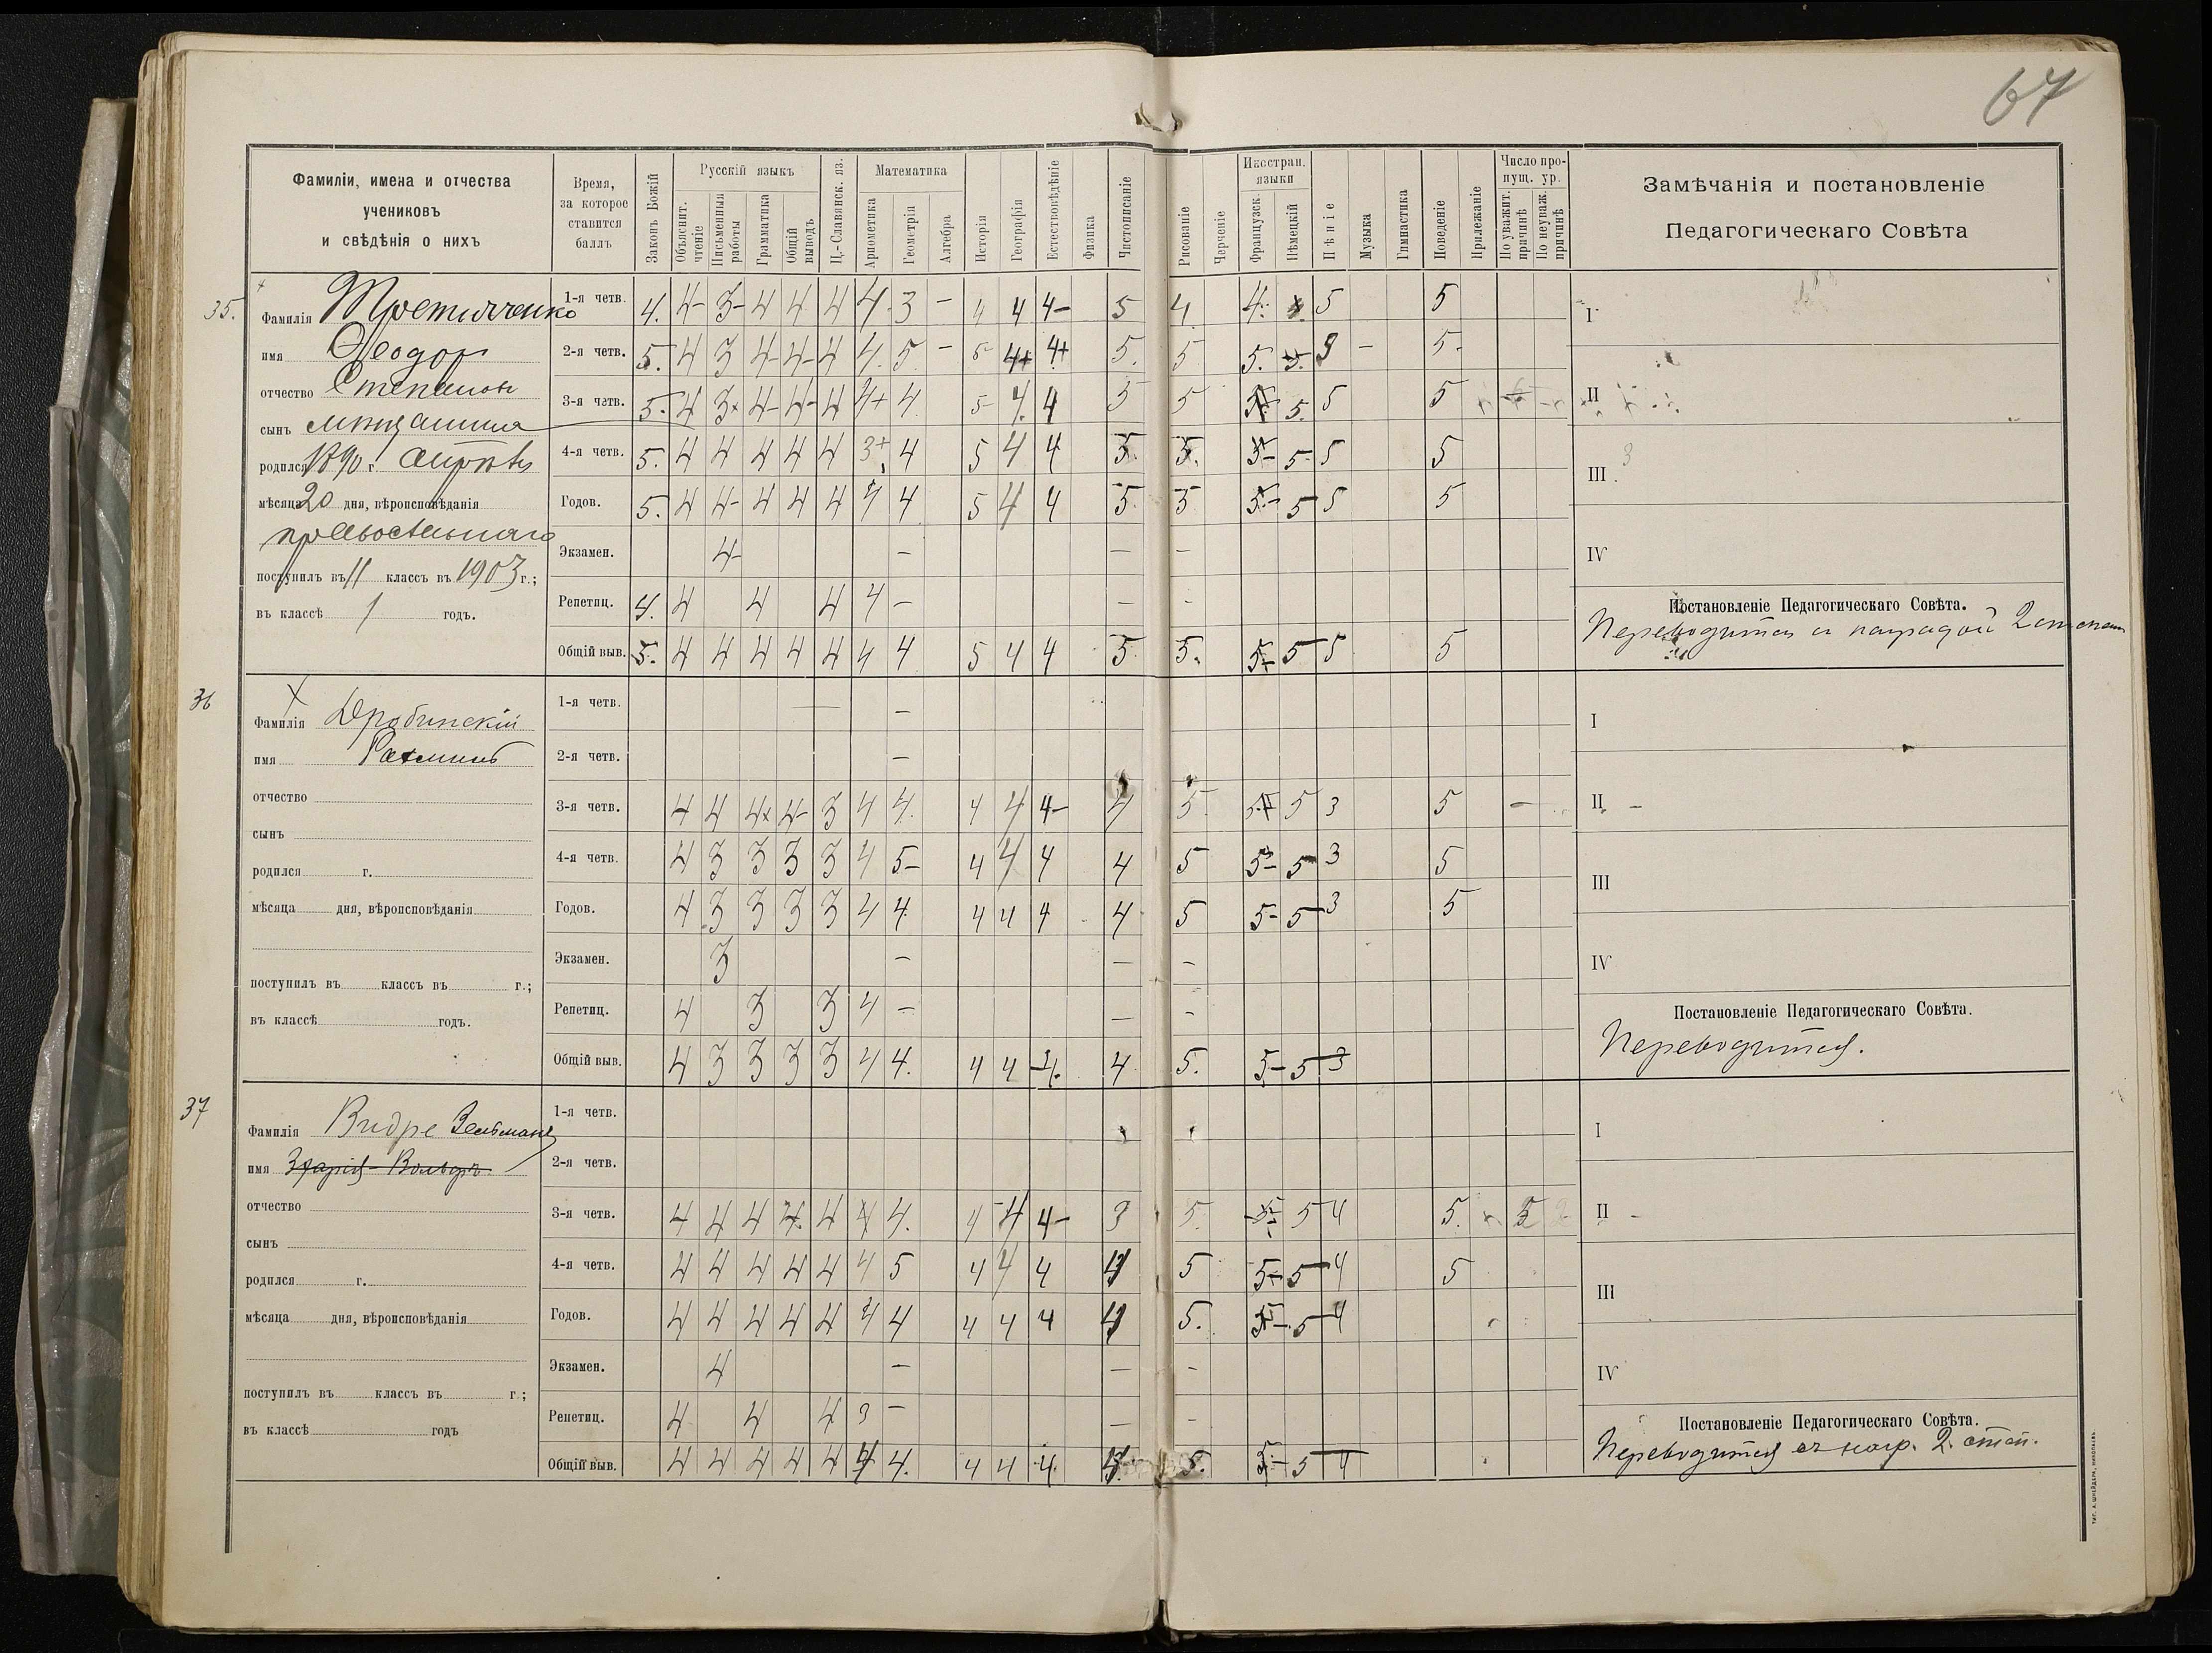 67
Фамиліи, имена и отчества
учениковъ
и свѣдѣнія о нихъ
Время,
за которое
ставится
баллъ
Законъ Божій
Русскій языкъ
Объяснит.
чтеніе
Письменныя
работы
Грамматика
Общій
выводъ
Ц.-Славянск. яз.
Математика
Ариѳметика
Геометрія
Алгебра
Исторія
Географія
Естествовѣдѣніе
Физика
Чистописаніе
Рисованіе
Черченіе
Иностран.
языки
Французск.
Нѣмецкій
Пѣніе
Музыка
Гимнастика
Поведеніе
Прилежаніе
Число про-
пущ. ур.
По уважит.
причинѣ
По неуваж.
причинѣ
Замѣчанія и постановленіе
Педагогическаго Совѣта
35.
Фамилія Третьяченко
имя Ѳеодоръ
отчество Степановъ
сынъ мѣщанина
родился 1890 г. апрѣль
мѣсяца 20 дня, вѣроисповѣданія
православнаго
поступилъ въ II классъ въ 1903 г.;
въ классѣ 1 годъ.
1-я четв. 4. 4- 3- 4 4 4 4 3 - 4 4 4- 5 4. 4. 5 5
2-я четв. 5. 4 3 4- 4- 4 4. 5 - 5 4+ 4+ 5. 5 5. 5. - 5.
3-я четв. 5. 4 3+ 4- 4- 4 4+ 4 5 4. 4 5 5 5. 5 5
4-я четв. 5. 4 4 4 4 4 3+ 4 5 4 4 5 5. 5- 5 5 5
Годов. 5. 4 4- 4 4 4 4 4 5 4 4 5 5 5- 5 5 5
Экзамен. 4- - - -
Репетиц. 4. 4 4 4 4 - - -
Общій выв. 5. 4 4 4 4 4 4 4 5 4 4 5 5. 5- 5 5 5
I
II
III
IV
Постановленіе Педагогическаго Совѣта.
Переводится съ наградой 2 степени
36
Фамилія Дробинскій
имя Рахминъ
отчество
сынъ
родился г.
мѣсяца дня, вѣроисповѣданія
поступилъ въ классъ въ г.;
въ классѣ годъ.
1-я четв. - -
2-я четв. -
3-я четв. 4 4 4+ 4- 3 4 4. 4 4 4- 4 5. 5 3 5 -
4-я четв. 4 3 3 3 3 4 5- 4 4 4 4 5 5- 5 3 5
Годов. 4 3 3 3 3 4 4 4 4 4 4 5 5- 5 3 5
Экзамен. 3 - - -
Репетиц. 4 3 3 4 - - -
Общій выв. 4 3 3 3 3 4 4. 4 4 4. 4 5. 5- 5 3
I
II -
III
IV
Постановленіе Педагогическаго Совѣта.
Переводится.
37
Фамилія Видре Зельманъ
имя Захарія-Вольфъ
отчество
сынъ
родился г.
мѣсяца дня, вѣроисповѣданія
поступилъ въ классъ въ г.;
въ классѣ годъ
1-я четв.
2-я четв.
3-я четв. 4 4 4 4. 4 4 4. 4 4 4- 3 5. 5- 5 4 5. 5
4-я четв. 4 4 4 4 4 4 5 4 4 4 4 5 5- 5 4 5
Годов. 4 4 4 4 4 4 4 4 4 4 4 5. 5- 5 4
Экзамен. 4 - - -
Репетиц. 4 4 4 3 - - -
Общій выв. 4 4 4 4 4 4 4. 4 4 4. 4 5. 5- 5 4
I
II -
III
IV
Постановленіе Педагогическаго Совѣта.
Переводится съ нагр. 2. степ.
тип. а. шнейдера, николаевъ.